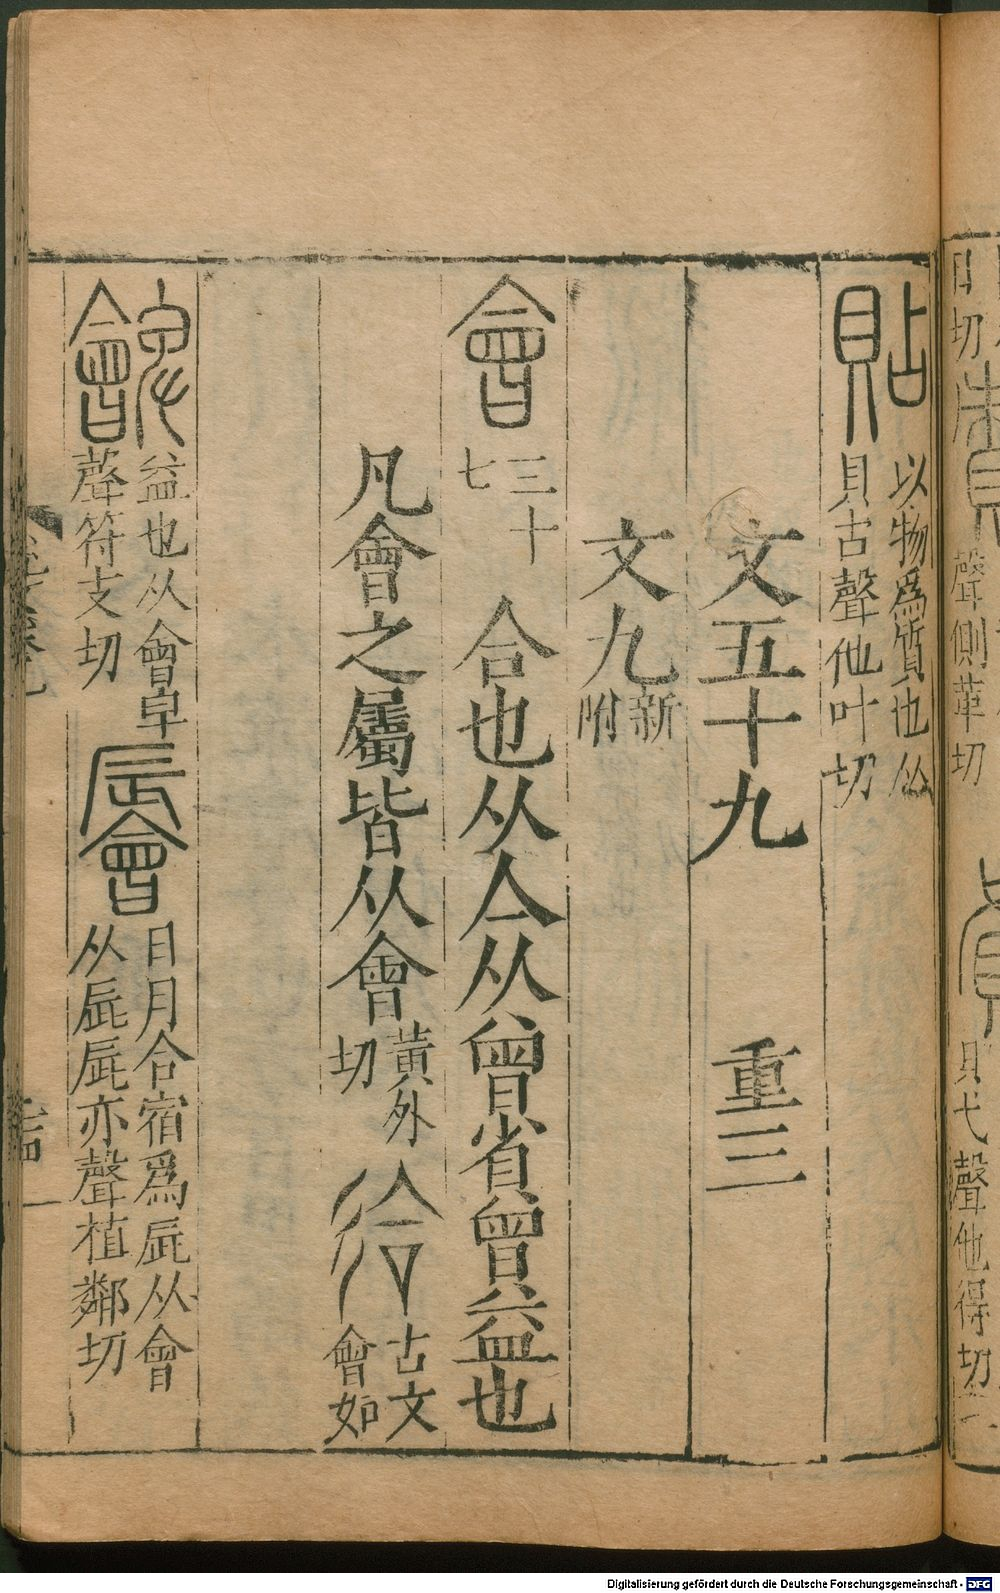 貼 以物爲質也从
貝占聲他叶切
文五十九　重三
文九 新附
會 三十七 合也从亼从曾省曾益也
凡會之屬皆从會 黃外切 㣛 古文會如
此
朇 益也从會卑聲符支切
䢈 日月合宿爲辰从會
从辰辰亦聲植鄰切
目切
聲側革切
貝弋聲他得切
Digitalisierung gefördert durch die Deutsche Forschungsgemeinschaft - DFG